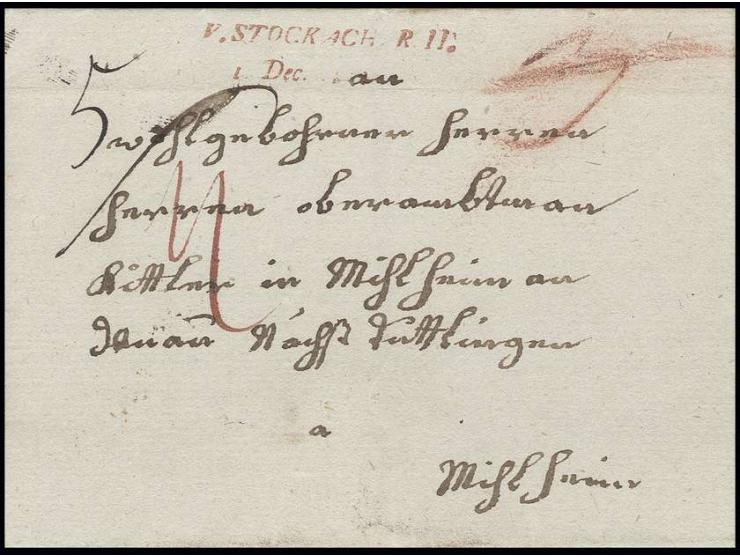 V. STOCKACH. R. II.
1 Dec. an
wohlgebohrner herren
herren oberambtman
Kittler in Mihlheim an
donau Nächst Tuttlingen
a
Mihlheim